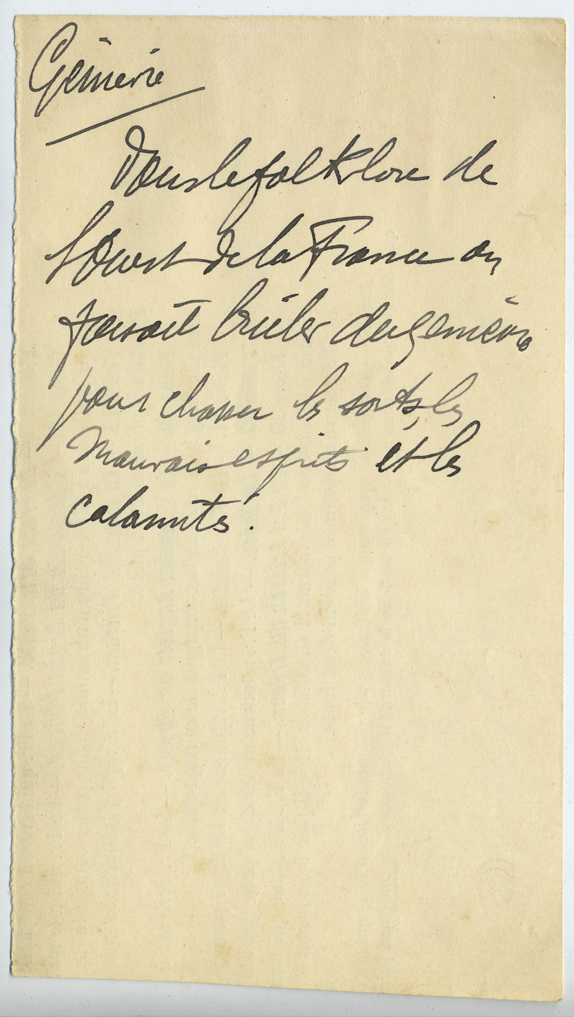 Genièvre
Dans le folklore de
l'Ouest de la France on
faisait brûler du genièvre
pour chasser les sorts, les
mauvais esprits et les
calamités.